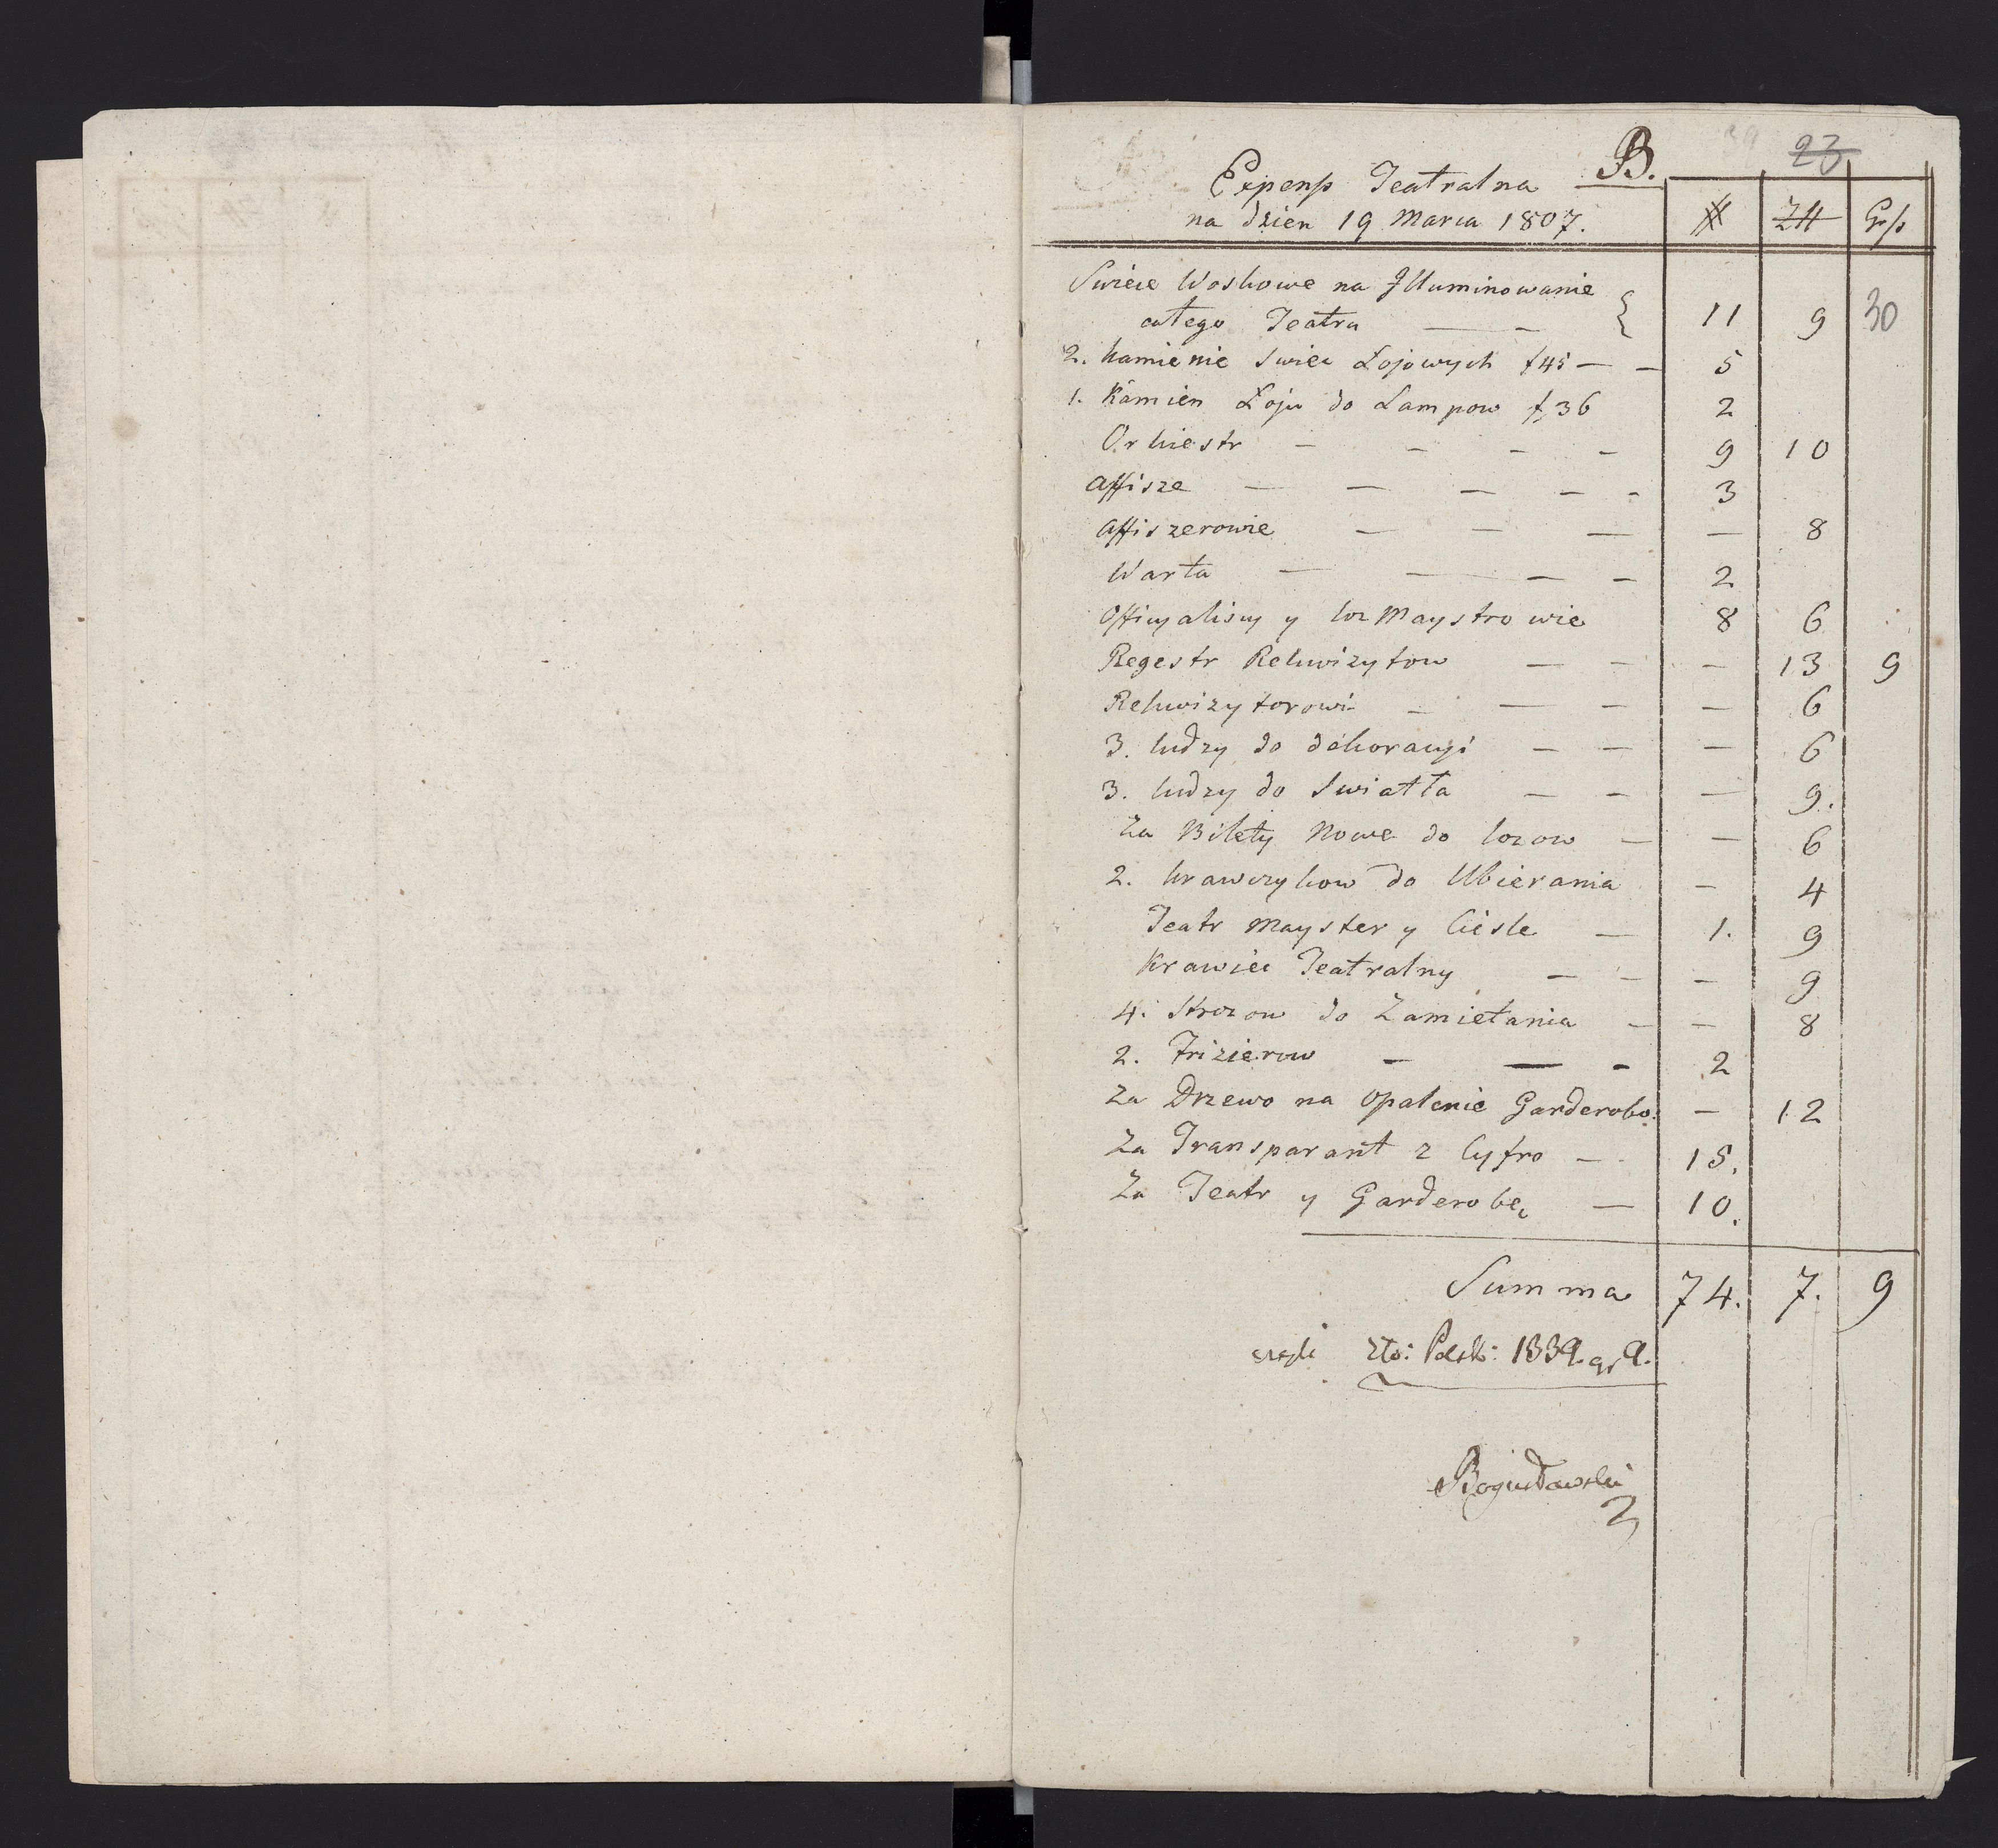 B. 23
Expens Teatralna
na dzien 19 Marca 1807. # Złł Grs
Swiece Woskowe na Illuminowanie
całego Teatru — - 11 9 30
2. kamienie swiec Łojowych f 45 — - 5
1. Kamien Łoju do Lampow f 36 2
Orkiestr - - - - 9 10
Affisze — — — - - 3
Affiszerowie — — — — 8
Warta — — — - 2
Officyalisci y lozMaystrowie 8 6
Regestr Rekwizytow — - - 13 9
Rekwizytorowi - — - — 6
3. ludzy do dekoracyi — - — 6
3. ludzy do Swiatła — - — 9.
Za Bilety Nowe do lozow — — 6
2. krawczykow do Ubierania - 4
Teatr Mayster y Cieśle — 1. 9
Krawiec Teatralny — - - 9
4. Strozow do Zamietania - - 8
2. Frizierow - — - 2
Za Drzewo na Opalenie Garderobo: — 12
Za Transparant z Cyfro — - 15.
Za Teatr y Garderobę — 10.
Summa 74. 7. 9
czyli Zło: Polsk: 1339. gr 9.
Bogusławski